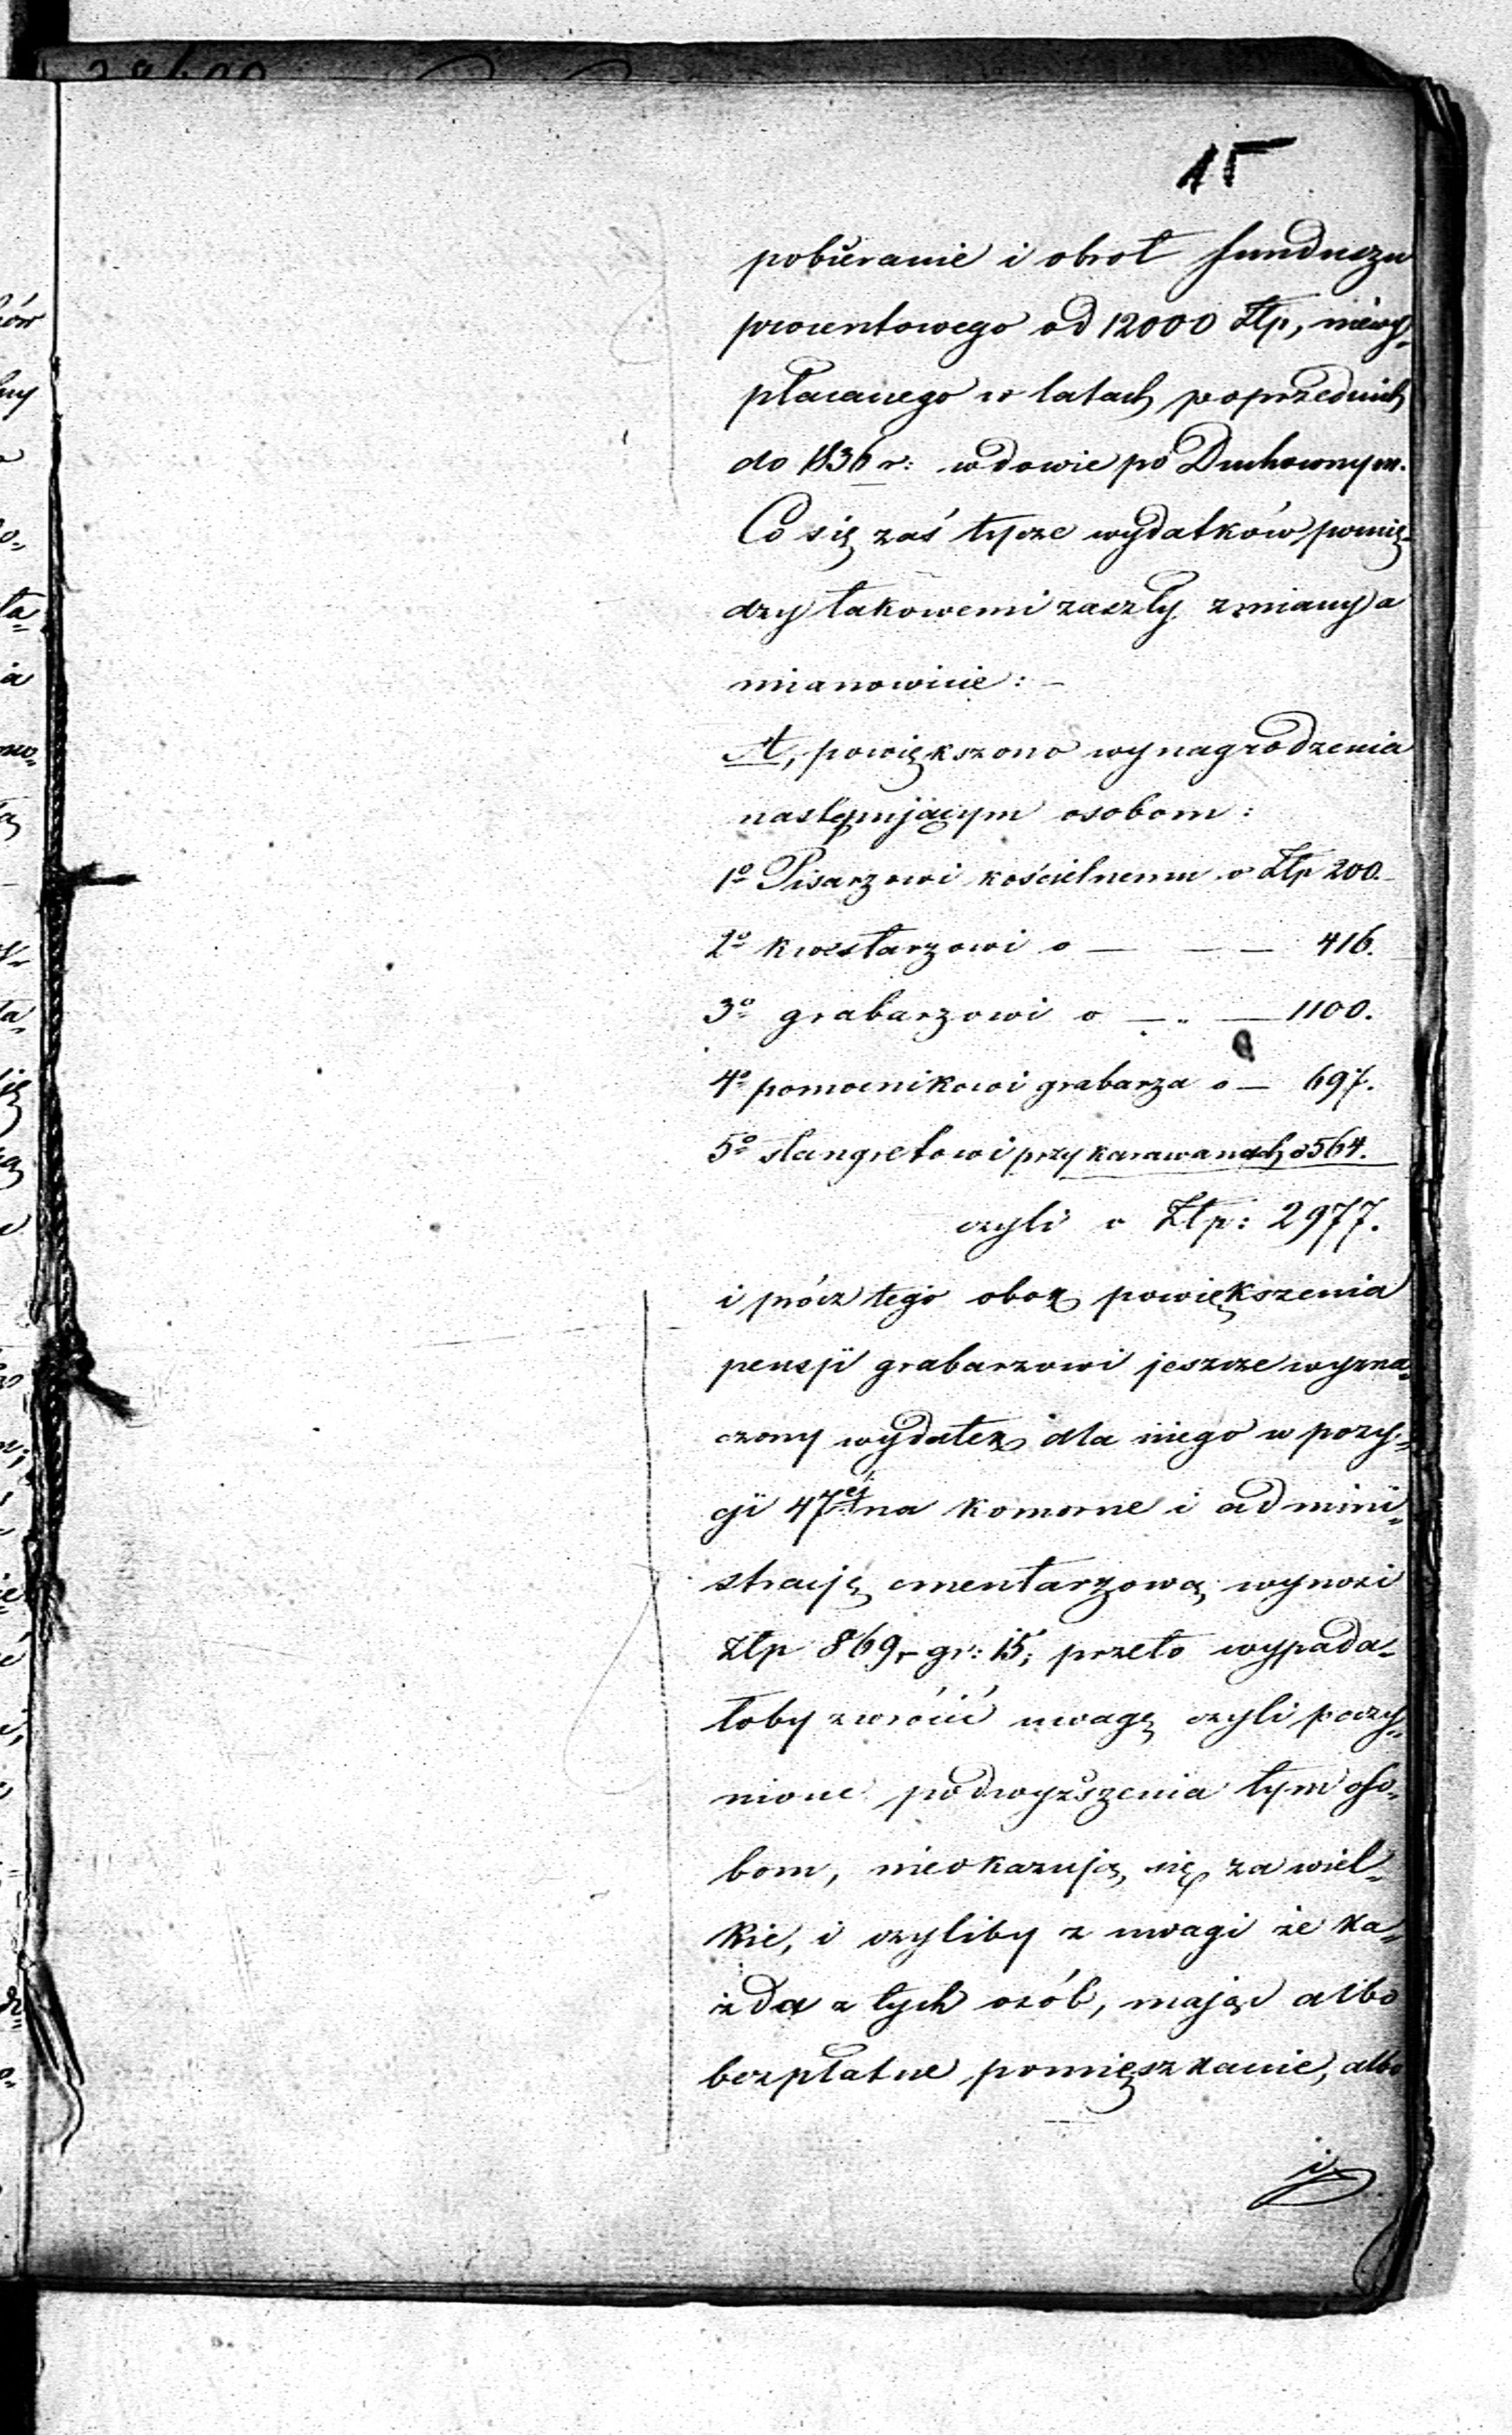 15
pobieranie i obrot funduszu
procentowego od 12000 Złp, niewy„
płacanego w latach poprzednich
do 1836 r: wdowie po Duchownym.
Co się zaś tycze wydatków pomię„
dzy takowemi zaszły zmiany a
mianowicie: –
A, powiększono wynagrodzenia
następującym osobom:
1º Pisarzowi kościelnemu o Złp 200.
2º kwestarzowi o — — — 416.
3º grabarzowi o — „ — 1100.
4º pomocnikowi grabarza o — 697.
5º stangretowi przy karawanach o 564.
czyli o Złp: 2977.
i prócz tego obok powiększenia
pensji grabarzowi jeszcze wyzna„
czony wydatek dla niego w pozy„
cji 47éj na komorne i admini„
stracją cmentarzową wynosi
Złp 869,– gr: 15; przeto wypada„
łoby zwrócić uwagę czyli poczy„
nione podwyższenia tym oso„
bom, nieokazują się za wiel„
kie, i czyliby z uwagi że ka„
żda z tych osób, mając albo
bezpłatne pomięszkanie, albo
i